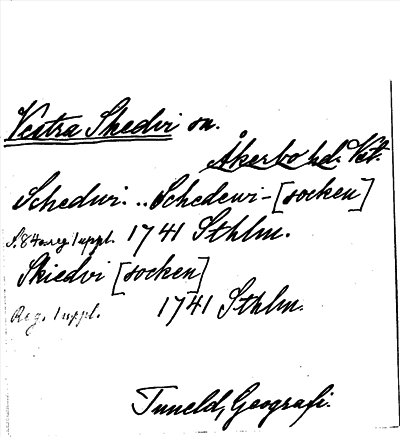 Vestra Skedvi sn.
Åkerbo hd. Vstm.
Schedwi. .. Schedewi- [socken]
s. 84 reg 1 uppl. 1741 Sthlm.
Skiedvi [socken]
Reg. 1 uppl. 1741 Sthlm.
Tuneld, Geografi.